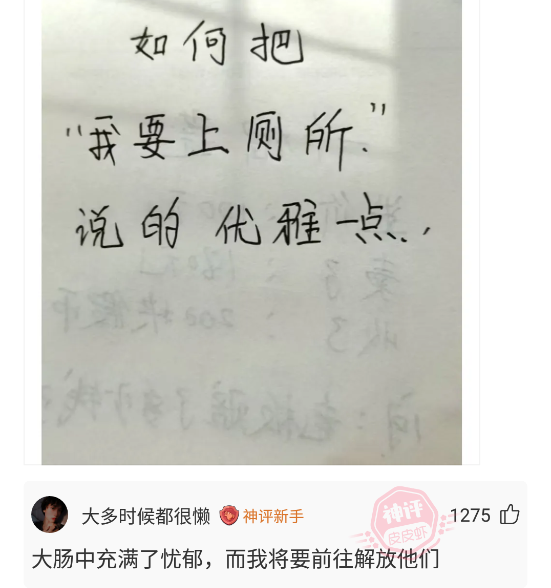 如何把
“我要上厕所.”
说的优雅一点..,
大多时候都很懒 神评新手 1275
神评
皮皮虾
大肠中充满了忧郁，而我将要前往解放他们